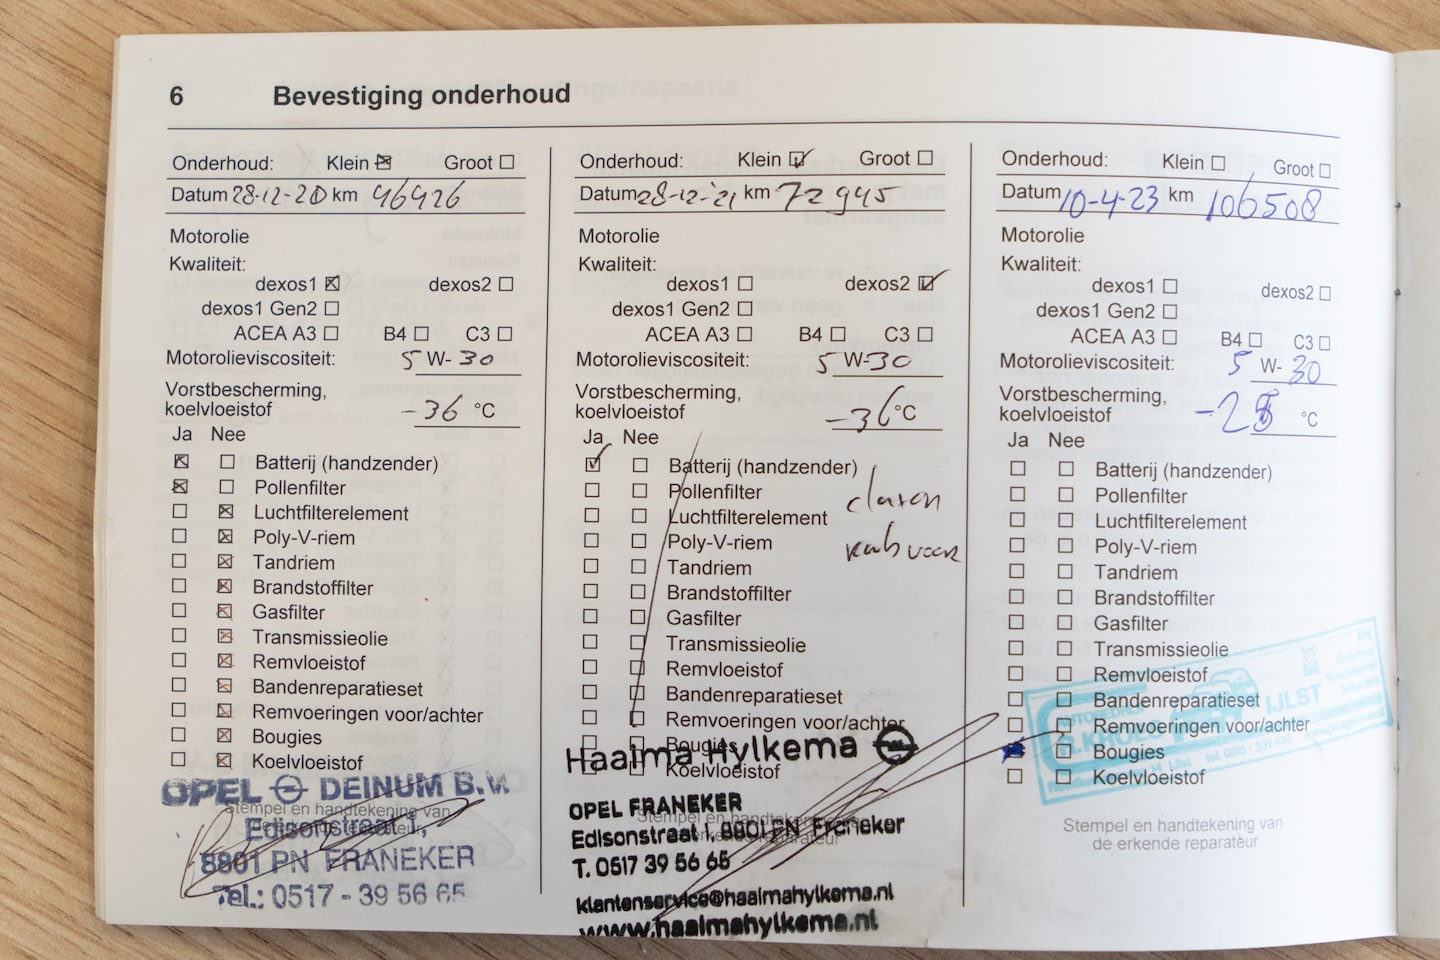 6 Bevestiging onderhoud
Onderhoud: Klein Groot
Datum 28-12-20 km 46426
Motorolie
Kwaliteit:
dexos1 dexos2
dexos1 Gen2
ACEA A3 B4 C3
Motorolieviscositeit: 5 W-30
Vorstbescherming,
koelvloeistof -36 °C
Ja Nee
Batterij (handzender)
Pollenfilter
Luchtfilterelement
Poly-V-riem
Tandriem
Brandstoffilter
Gasfilter
Transmissieolie
Remvloeistof
Bandenreparatieset
Remvoeringen voor/achter
Bougies
Koelvloeistof
OPEL DEINUM B.V.
Stempel en handtekening van
Edisonstraat 1,
8801 PN FRANEKER
Tel.: 0517 - 39 56 65
Onderhoud: Klein Groot
Datum 28-12-'21 km 72945
Motorolie
Kwaliteit:
dexos1 dexos2
dexos1 Gen2
ACEA A3 B4 C3
Motorolieviscositeit: 5 W-30
Vorstbescherming,
koelvloeistof -36 °C
Ja Nee
Batterij (handzender)
Pollenfilter
Luchtfilterelement
Poly-V-riem
Tandriem
Brandstoffilter
Gasfilter
Transmissieolie
Remvloeistof
Bandenreparatieset
Remvoeringen voor/achter
Bougies
Koelvloeistof
Haaima Hylkema
OPEL FRANEKER
Edisonstraat 1, 8801 PN Franeker
T. 0517 39 56 65
klantenservice@haaimahylkema.nl
www.haaimahylkema.nl
Onderhoud: Klein Groot
Datum 10-4-23 km 106508
Motorolie
Kwaliteit:
dexos1 dexos2
dexos1 Gen2
ACEA A3 B4 C3
Motorolieviscositeit: 5 W-30
Vorstbescherming,
koelvloeistof °C
Ja Nee
Batterij (handzender)
Pollenfilter
Luchtfilterelement
Poly-V-riem
Tandriem
Brandstoffilter
Gasfilter
Transmissieolie
Remvloeistof
Bandenreparatieset
Remvoeringen voor/achter
Bougies
Koelvloeistof
AUTOBEDRIJF
IJLST
Stempel en handtekening van
de erkende reparateur